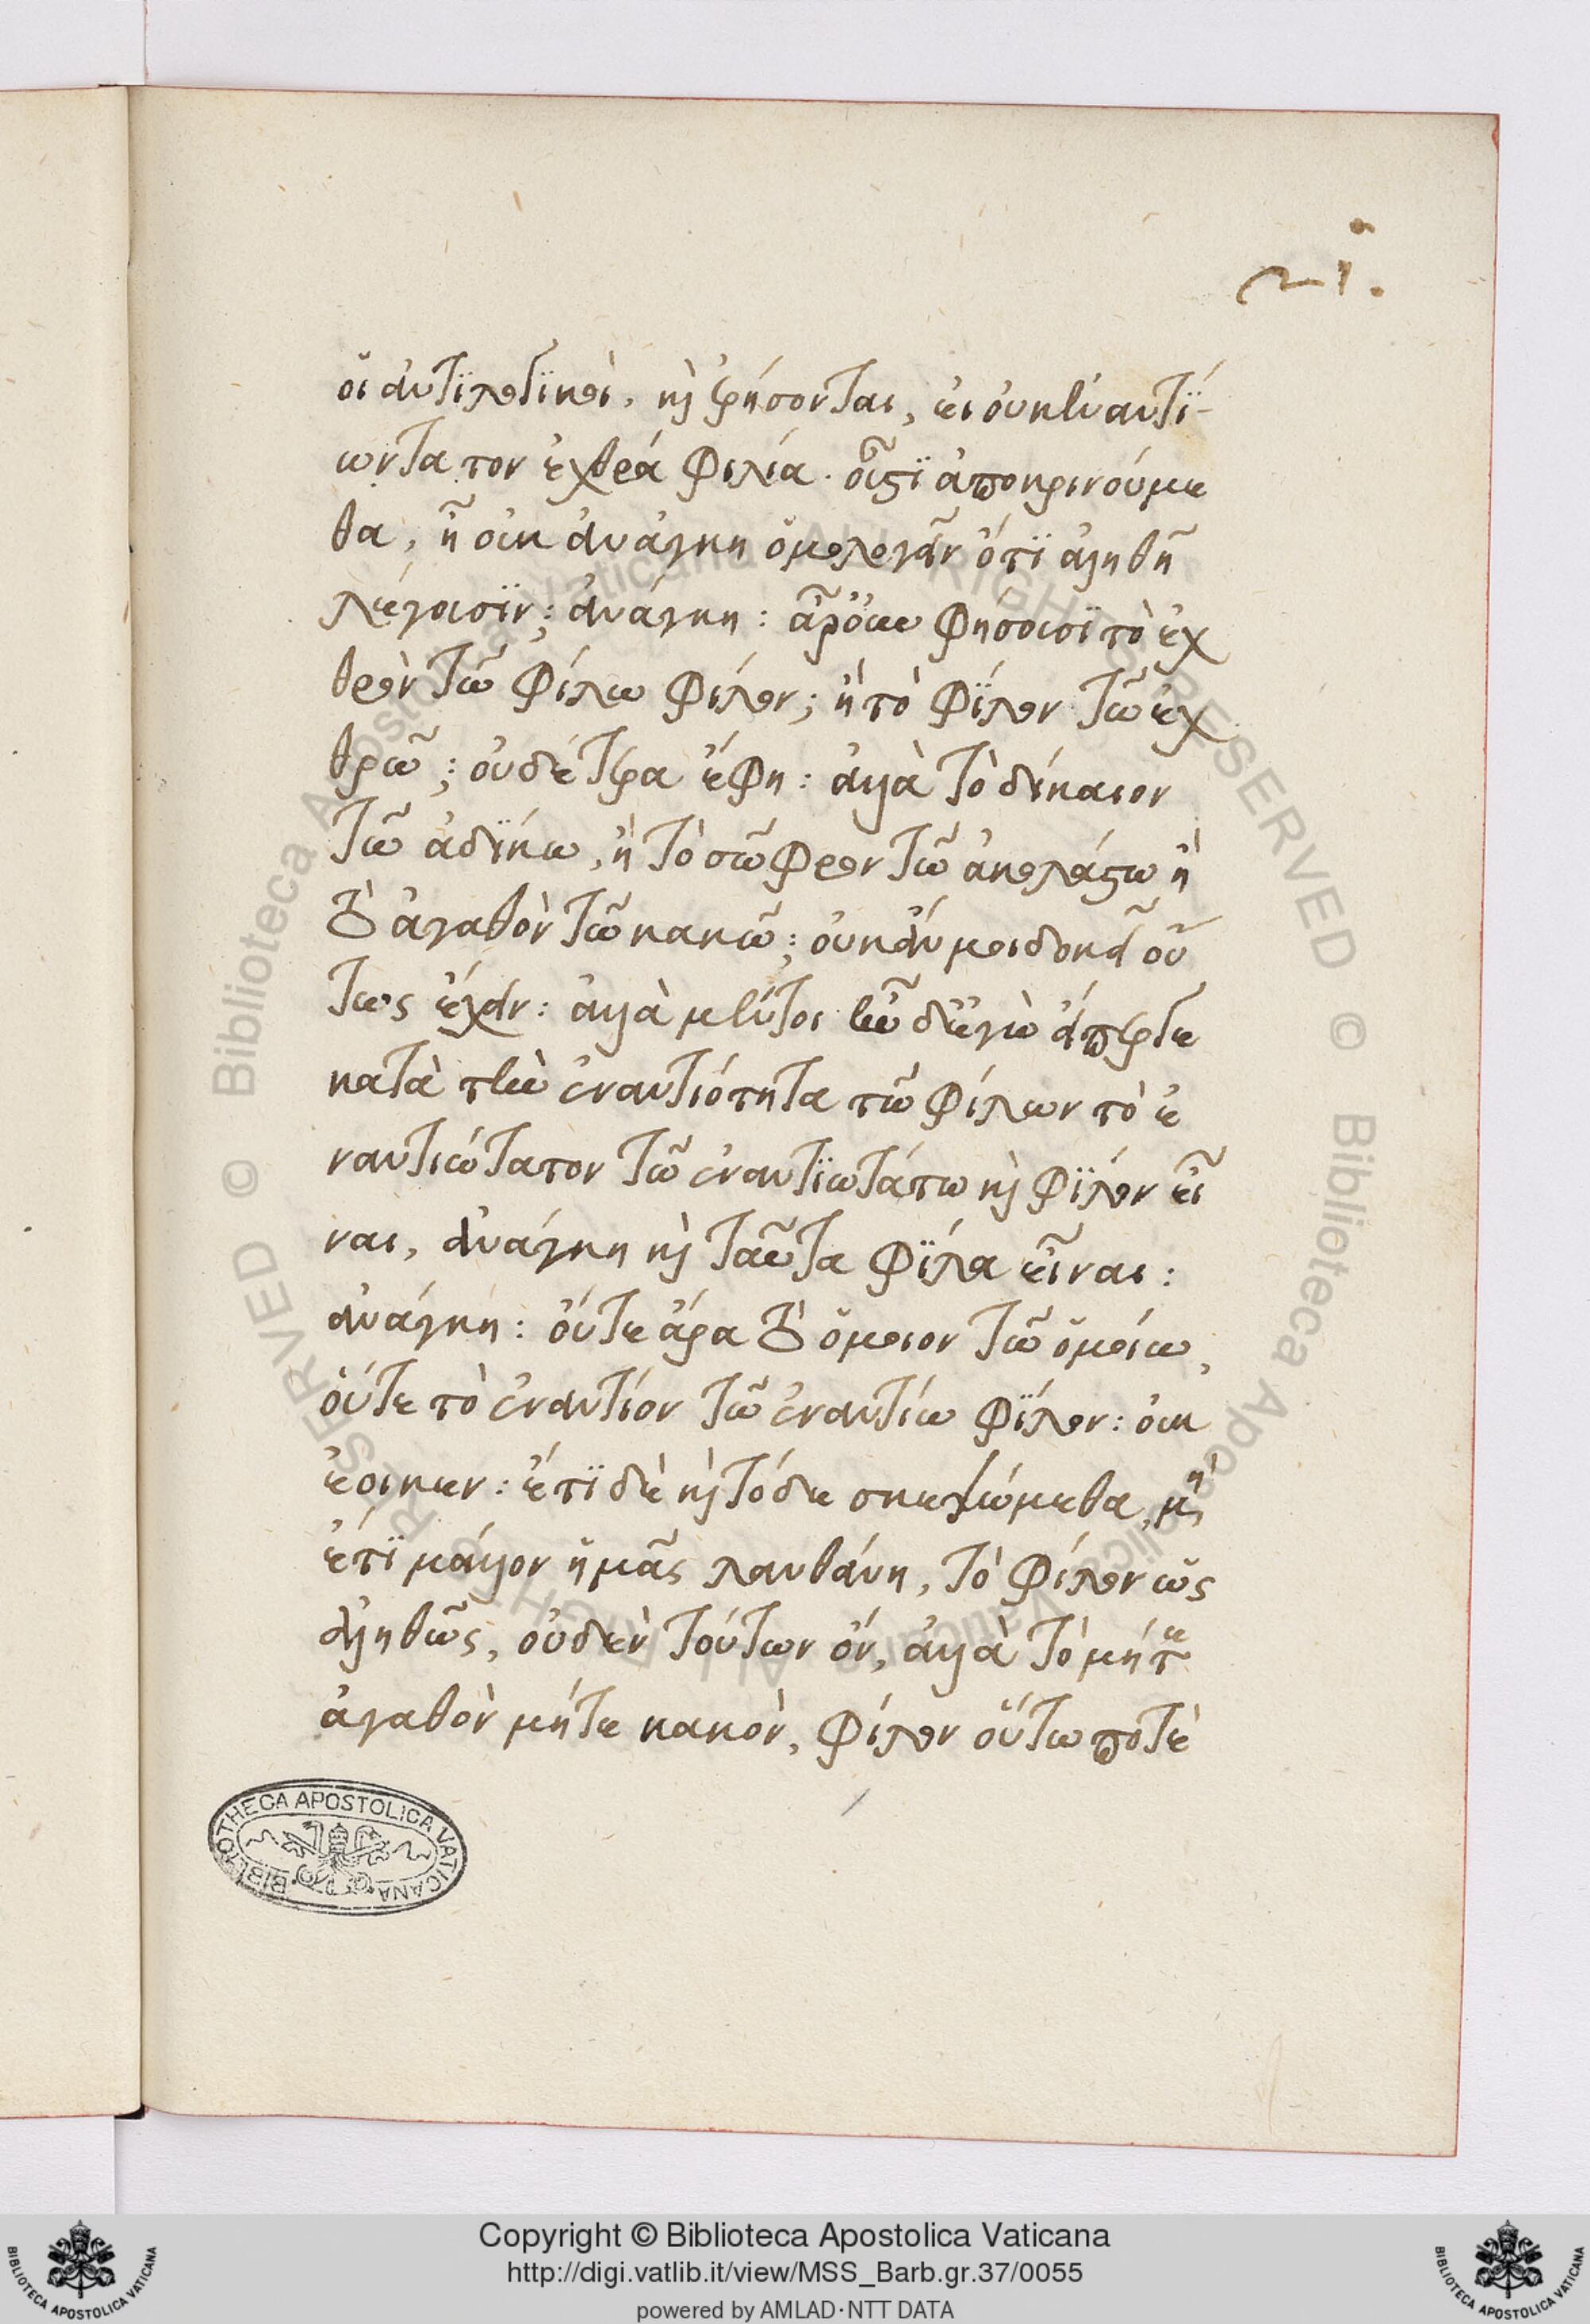 οἱ ἀντιλογικοὶ, καὶ ἐρήσονται, εἰ οὐκ ἐναντι-
ώτατον ἔχθρα φιλία. οἷς τί ἀποκρινούμε
θα, ἢ οὐκ ἀνάγκη ὁμολογεῖν ὅτι ἀληθῆ
λέγουσιν; ἀνάγκη: ἆρ' οὖν φήσουσι τὸ ἐχ
θρὸν τῶ φίλω φίλον; ἢ τὸ φίλον τῶ ἐχ
θρῶ; οὐδέτερα ἔφη: ἀλλὰ τὸ δίκαιον
τῶ ἀδίκω, ἢ τὸ σῶφρον τῶ ἀκολάστω ἢ
τὸ ἀγαθὸν τῶ κακῶ; οὐκ ἄν μοι δοκεῖ οὕ
τως ἔχειν: ἀλλὰ μέντοι ἦν δ' ἐγὼ εἴπερ γε
κατὰ τὴν ἐναντιότητα τῶ φίλων τὸ ἐ
ναντιώτατον τῶ ἐναντιωτάτω καὶ φίλον εἶ
ναι, ἀνάγκη καὶ ταῦτα φίλα εἶναι:
ἀνάγκη: οὔτε ἄρα τὸ ὅμοιον τῶ ὁμοίω,
οὔτε τὸ ἐναντίον τῶ ἐναντίω φίλον: οὐκ
ἔοικεν: ἔτι δὲ καὶ τόδε σκεψώμεθα, μὴ
ἔτι μάλλον ἡμᾶς λανθάνη, τὸ φίλον ὡς
ἀληθῶς, οὐδὲν τούτων ὄν, ἀλλὰ τὸ μήτε
ἀγαθὸν μήτε κακὸν, φίλον οὕτω ποτὲ
BIBLIOTHECA APOSTOLICA VATICANA
Copyright © Biblioteca Apostolica Vaticana
http://digi.vatlib.it/view/MSS_Barb.gr.37/0055
powered by AMLAD·NTT DATA